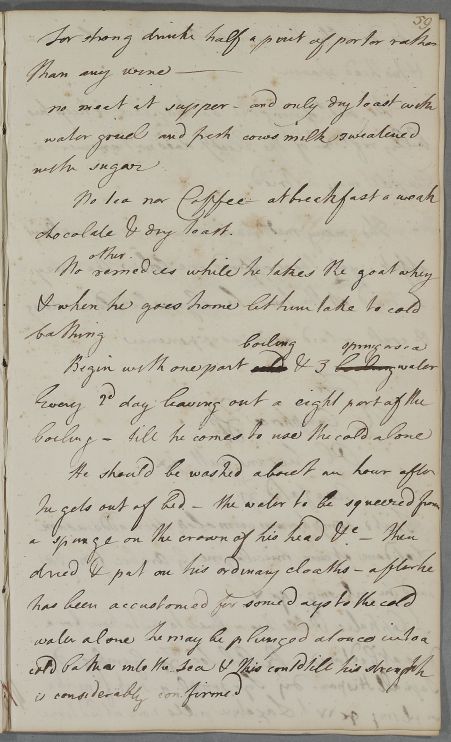 59
For strong drink half a pint of portor rather
than any wine —
no meat at supper - and only dry toast with
water gruel and fresh cows milk sweatened
with sugar
No tea nor Coffee - at breakfast a weak
chocolate & dry toast.
other
No remedies while he takes the goat whey
& when he goes home let him take to cold
bathing
boiling spring or sea
Begin with one part cold & 3 water
Every 2d day leaving out a eight part of the
boiling - till he comes to use the cold alone
He should be washed about an hour after
he gets out of bed - the water to be squeezed from
a spunge on the crown of his head &c - then
dried & put on his ordinary cloaths - after he
has been accustomed for some days to the cold
water alone he may be plunged at once into a
cold bath or into the Sea & this contd till his strength
is considerably confirmed